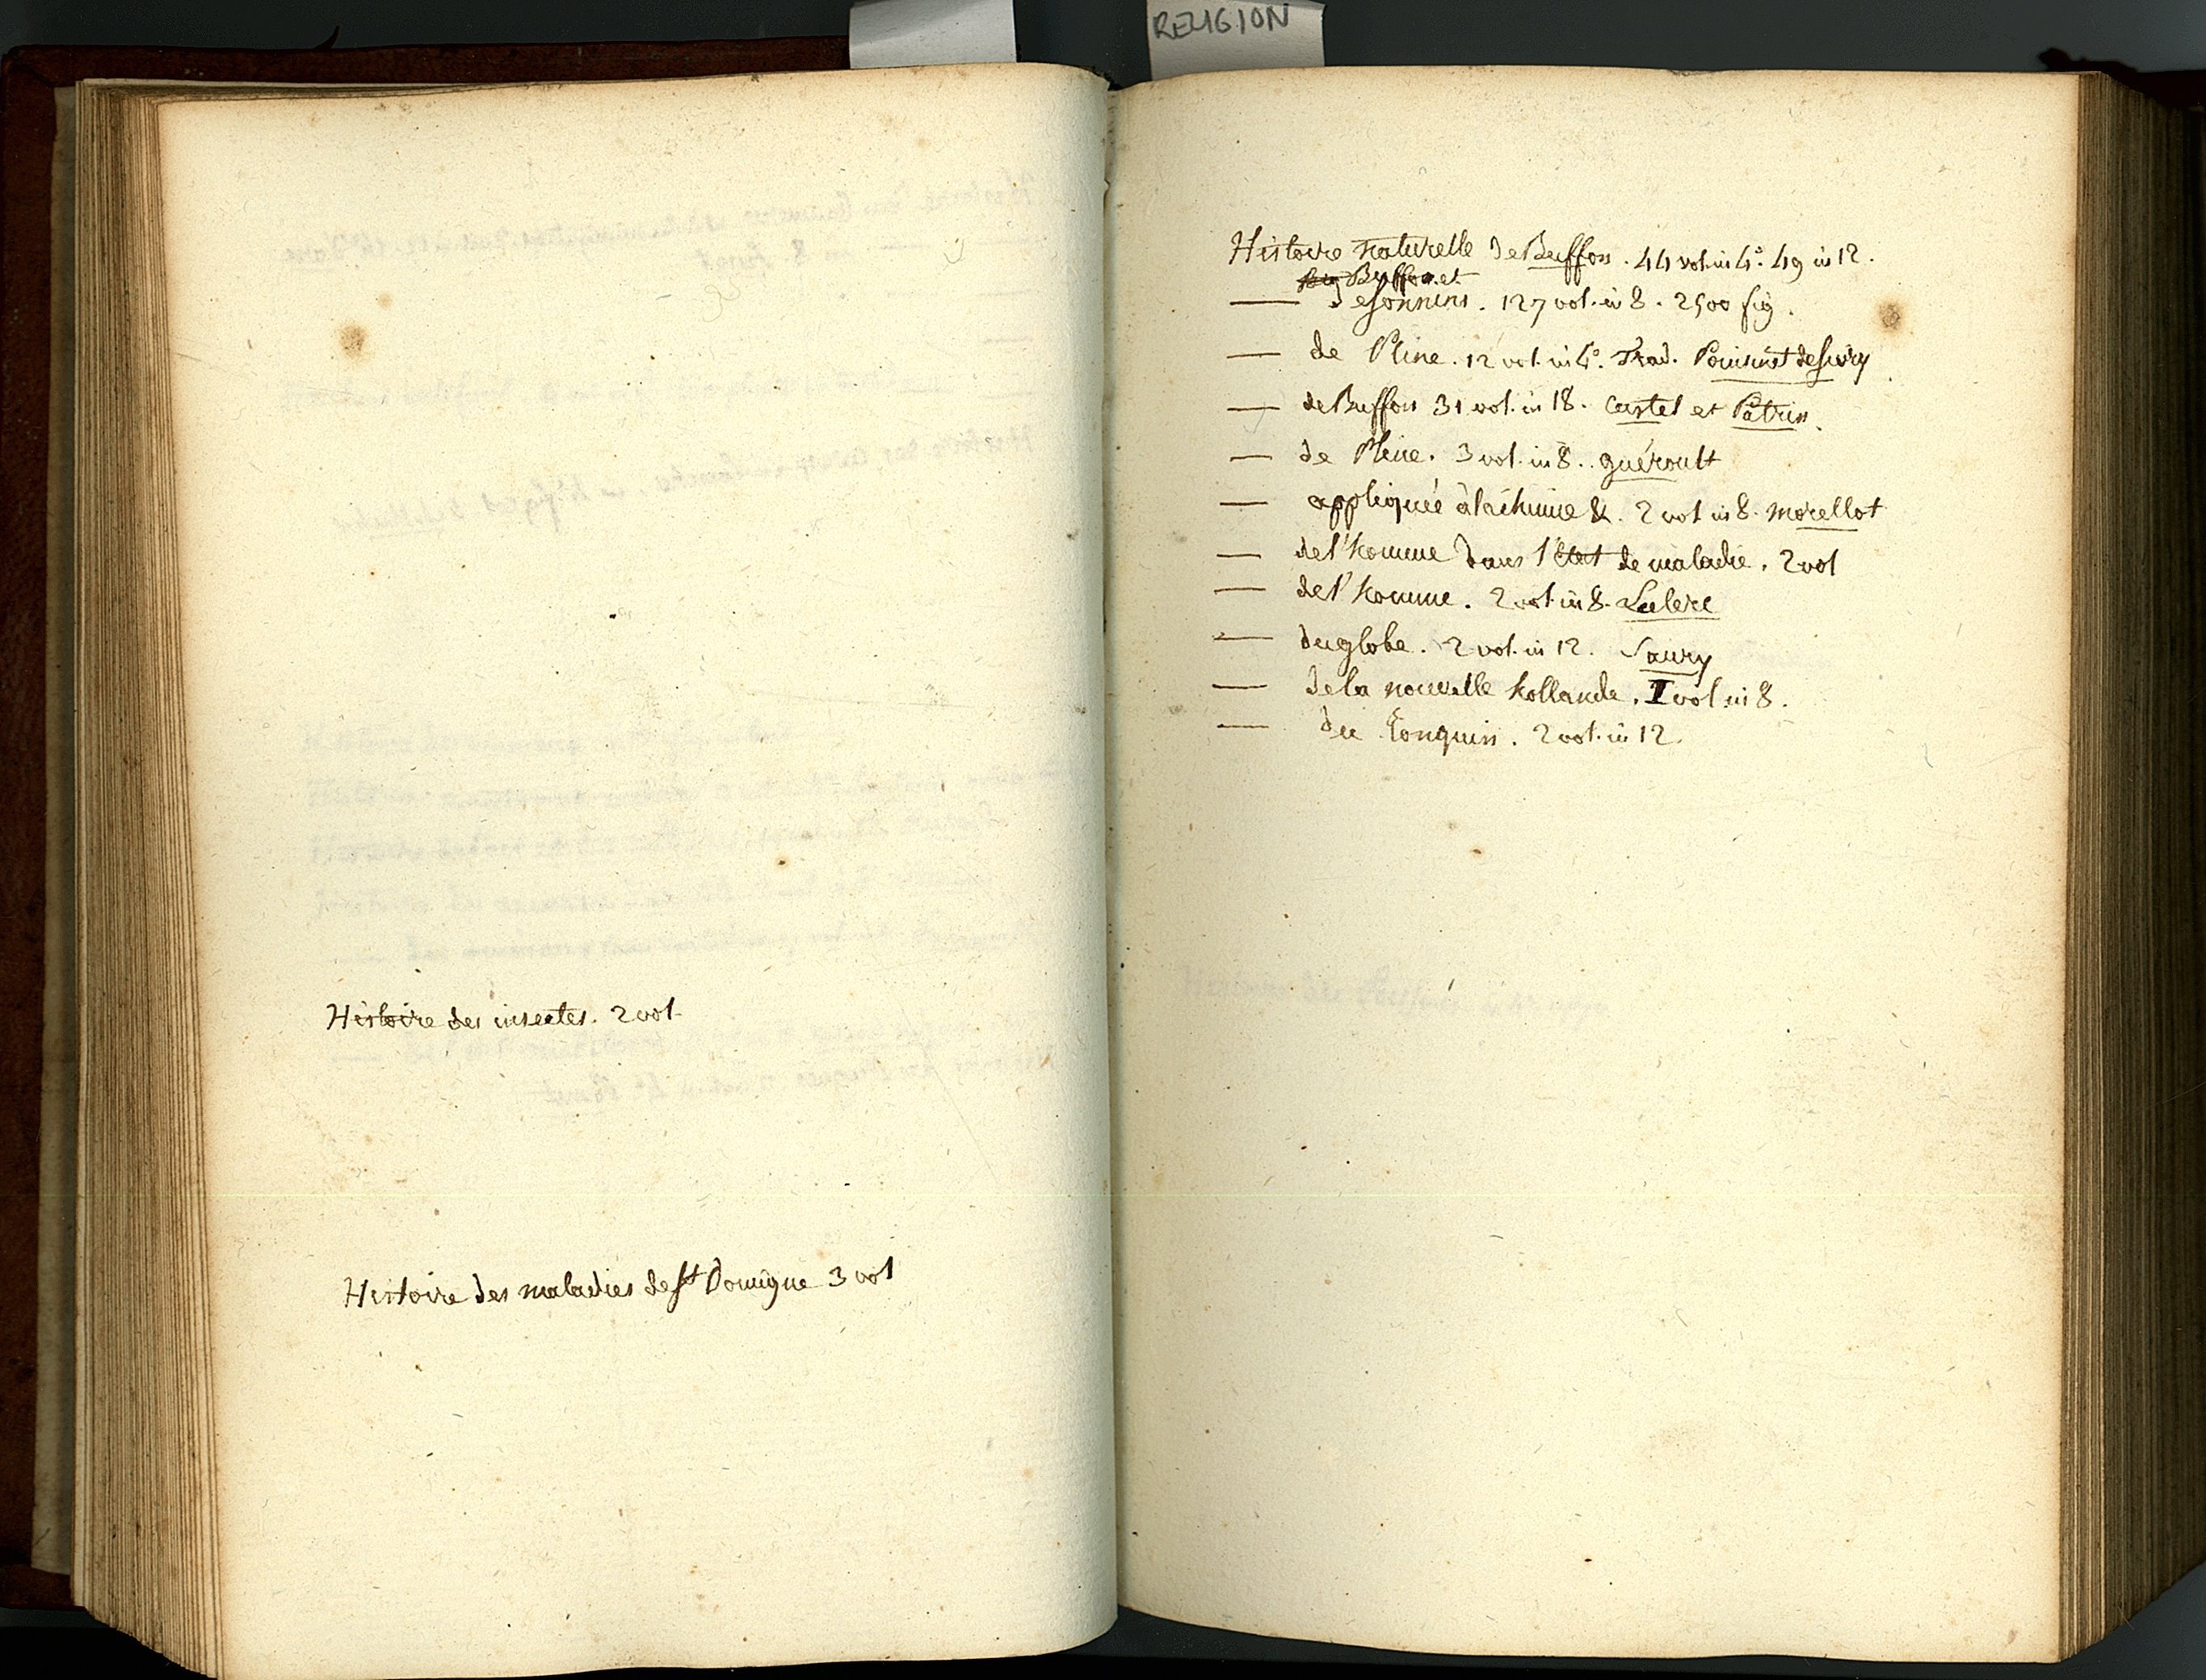 RELIGION
Histoire des insectes. 2 vol.
Histoire des maladies de St Domigue 3 vol
Histoire naturelle de Buffon. 44 vol. in 4°. 49 in 12.
Buffon et
— de Sonnini. 127 vol. in 8. 2500 fig.
— de Pline. 12 vol. in 4°. Trad. Poinsinet de Sivry
— de Buffon 31 vol. in 18. Castel et Patrin.
— de Pline. 3 vol. in 8. guéroult
— appliquée à la chimie &. 2 vol in 8. morellot
— de l'homme dans l'état de maladie. 2 vol
— de l'homme. 2 vol. in 8. Leclerc
— du globe. 2 vol. in 12. Saury
— de la nouvelle hollande. I vol. in 8.
— du tonquin. 2 vol. in 12.